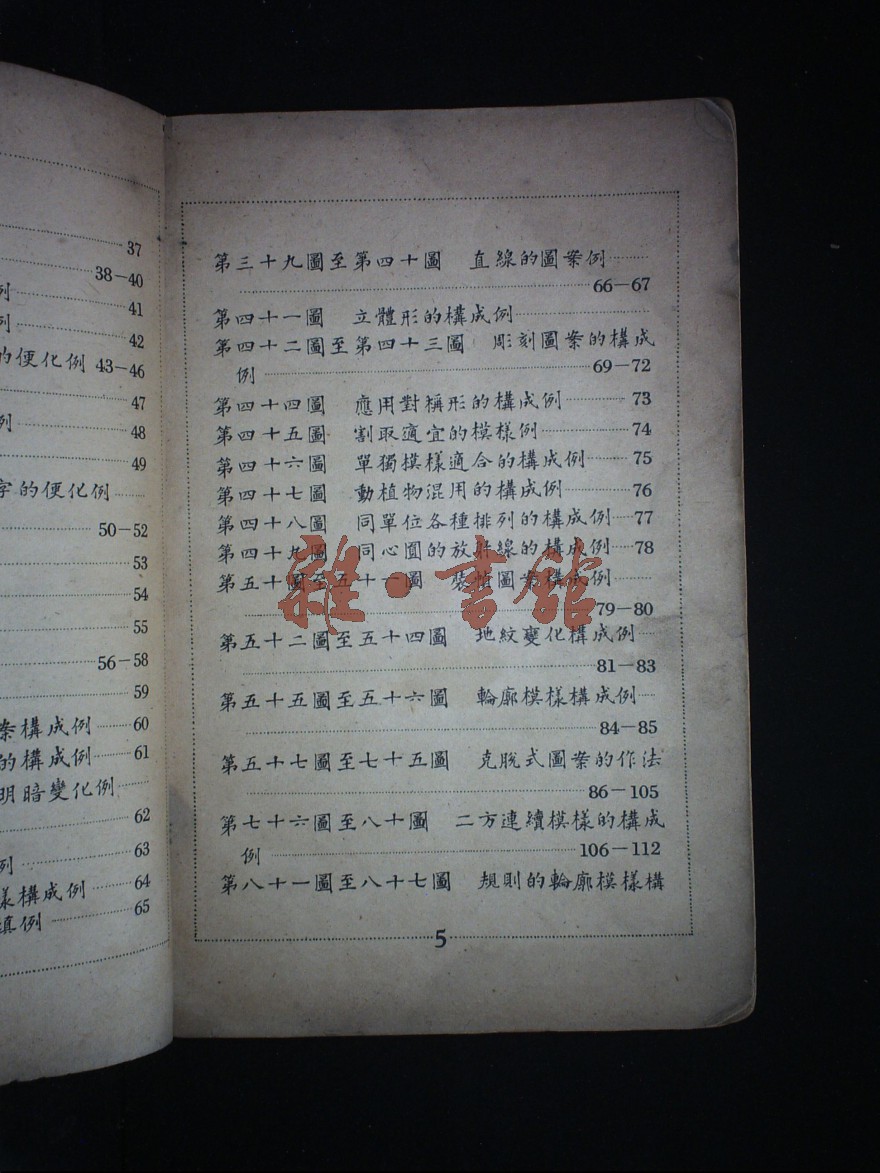 37
38—40
例 41
例 42
的便化例 43—46
47
例 48
49
字的便化例
50—52
53
54
55
56—58
59
案構成例 60
的構成例 61
明暗變化例
62
例 63
樣構成例 64
填例 65
第三十九圖至第四十圖 直線的圖案例
66—67
第四十一圖 立體形的構成例
第四十二圖至第四十三圖 彫刻圖案的構成
例 69—72
第四十四圖 應用對稱形的構成例 73
第四十五圖 割取適宜的模樣例 74
第四十六圖 單獨模樣適合的構成例 75
第四十七圖 動植物混用的構成例 76
第四十八圖 同單位各種排列的構成例 77
第四十九圖 同心圓的放射線的構成例 78
第五十圖至五十一圖 裝幀圖案構成例
79—80
第五十二圖至五十四圖 地紋變化構成例
81—83
第五十五圖至五十六圖 輪廓模樣構成例
84—85
第五十七圖至七十五圖 克脫式圖案的作法
86—105
第七十六圖至八十圖 二方連續模樣的構成
例 106—112
第八十一圖至八十七圖 規則的輪廓模樣構
5
雜·書館